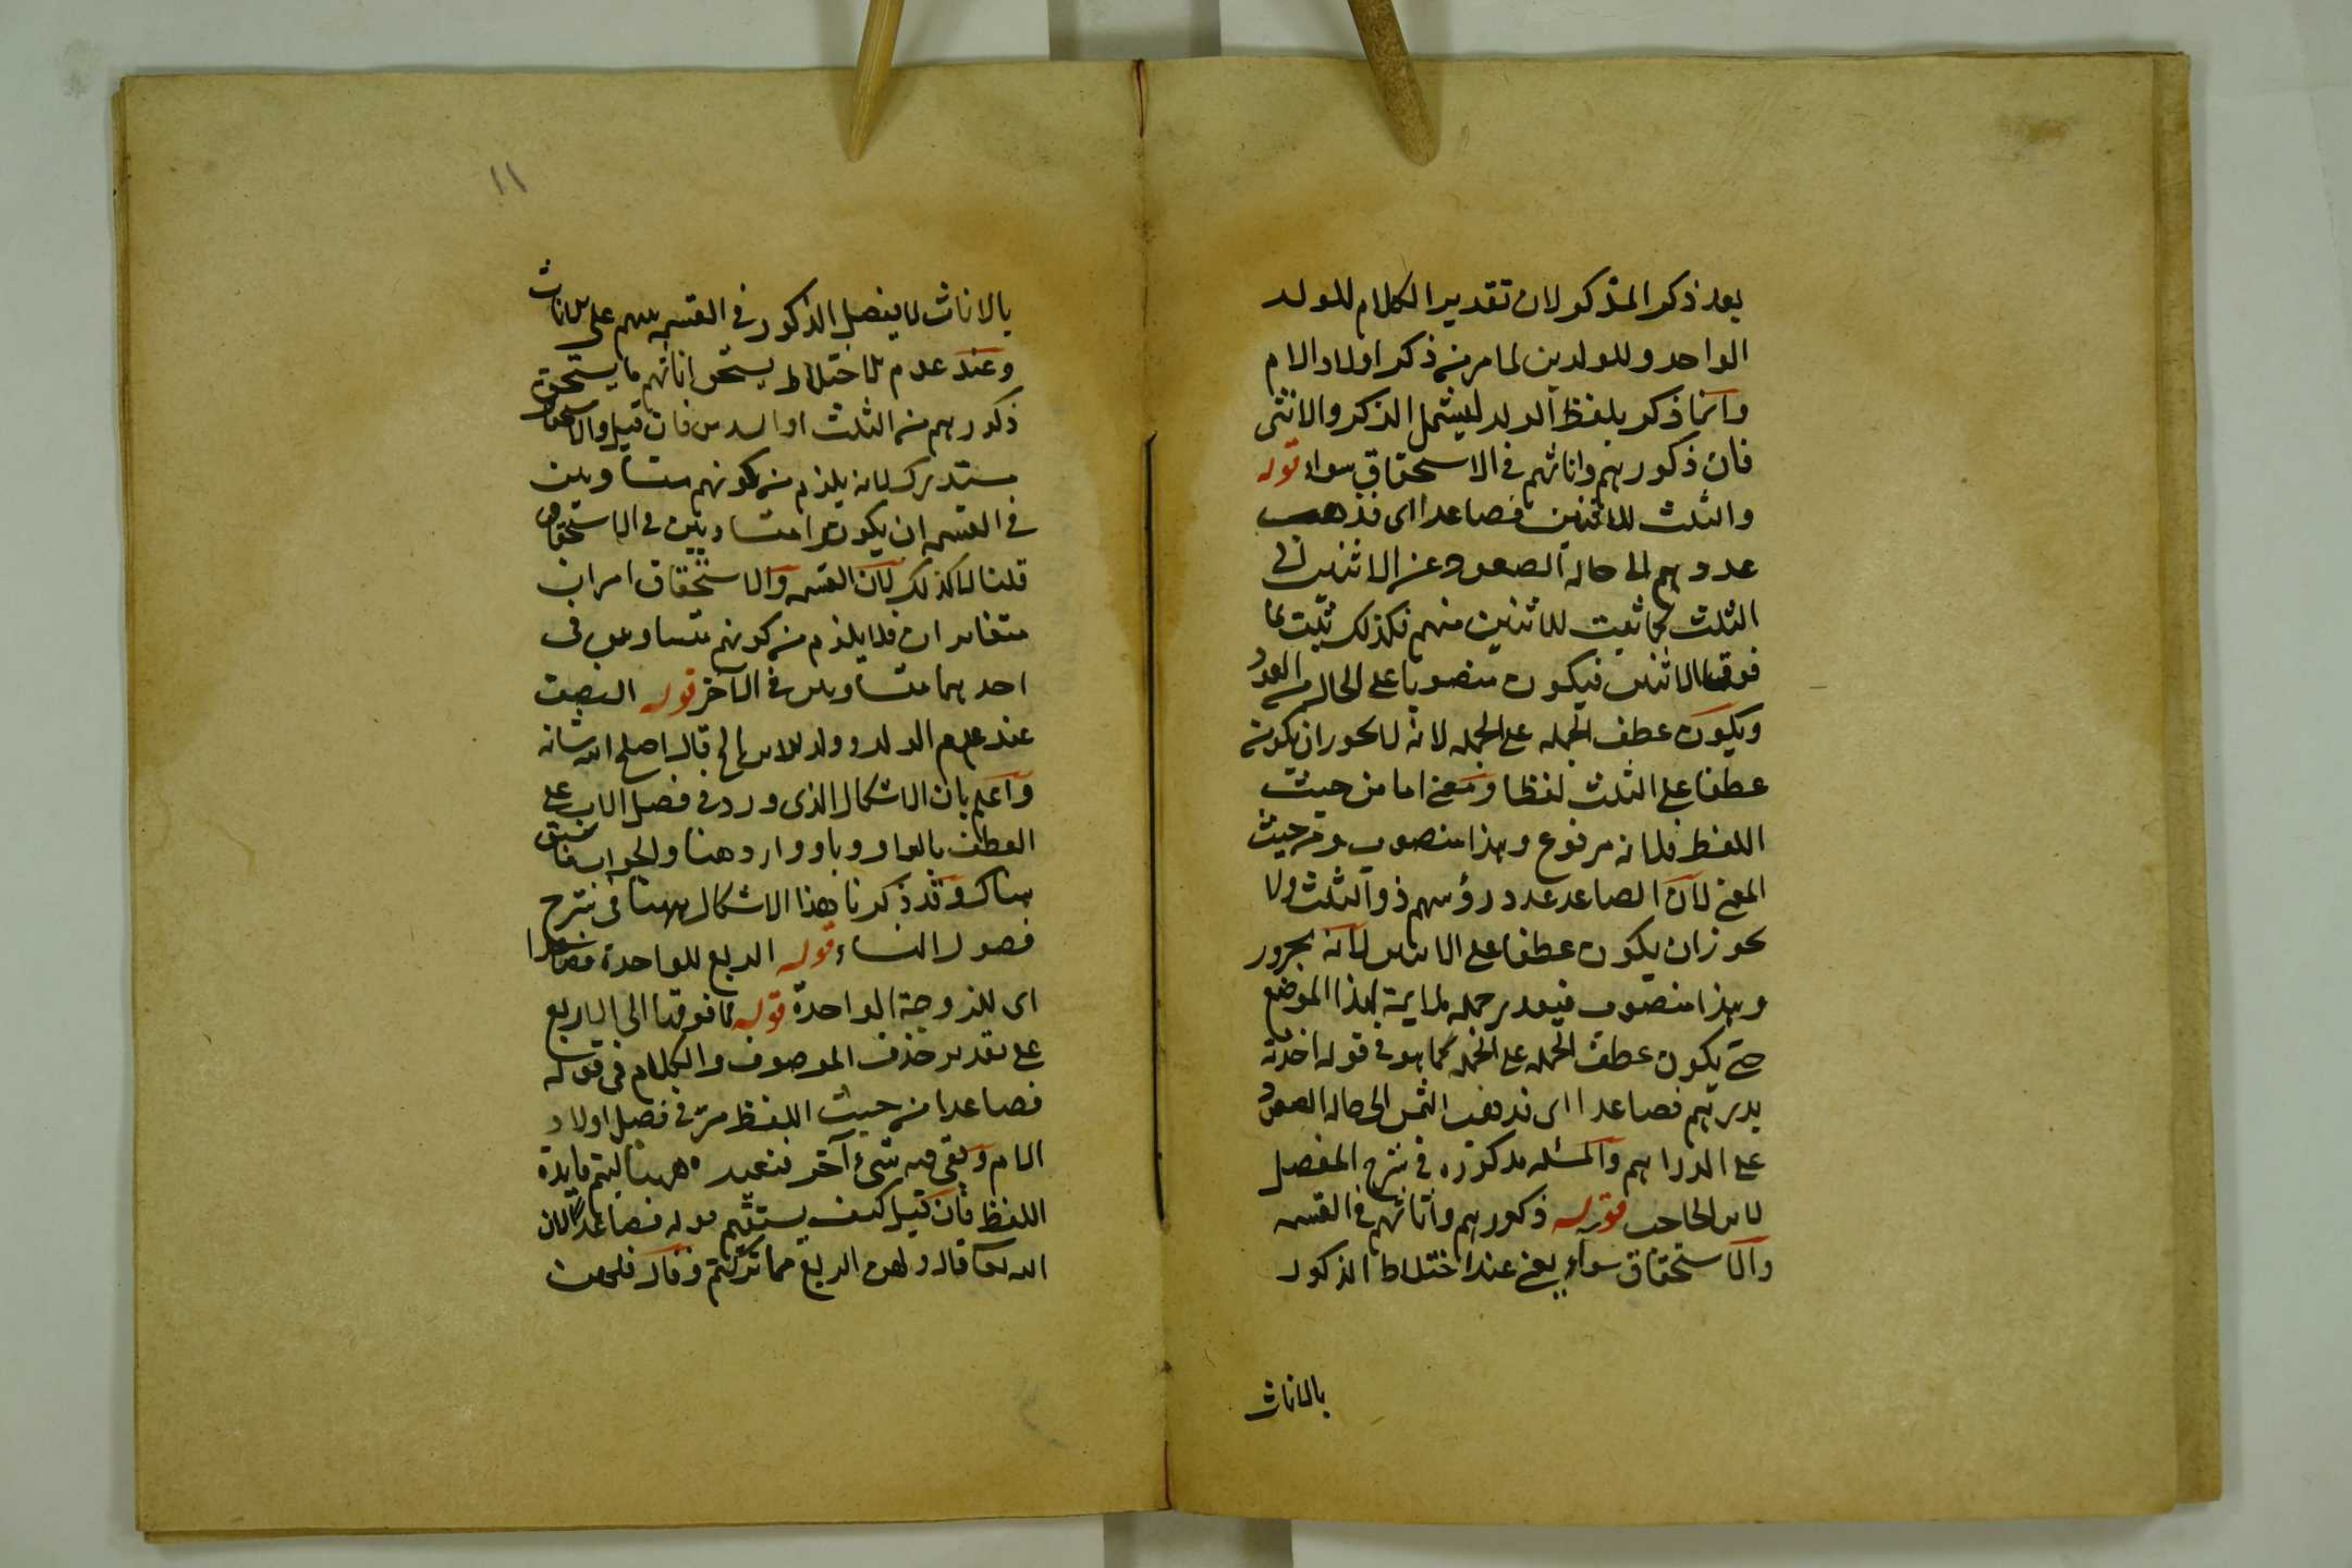 بعد ذكر المذكور لان تقدير الكلام للولد
الواحد وللولدين لما مر من ذكر اولاد الام
وانما ذكر بلفظ الولد ليشمل الذكر والانثى
فان ذكورهم واناثهم في الاستحقاق سواء قوله
والثلث للاثنين فصاعدا اى فذهب
عددهم الى حالة الصعود عن الاثنين لى
الثلث كما ثبت للاثنين منهم فكذلك ثبت لما
فوق الاثنين فيكون منصوبا على الحال من العدد
ويكون عطف الجمله على الجمله لانه لا يجوز ان يكون
عطفا على الثلث لفظا ومعنى اما من حيث
اللفظ فلانه مرفوع وهذا منصوب ومن حيث
المعنى لان الصاعد عدد رؤسهم ذو الثلث ولا
يجوز ان يكون عطفا على الاثنين لانه مجرور
وهذا منصوب فيقدر جمله لهذا الموضع
حتى يكون عطف الجمله على الجمله كما هو في قوله اخذته
بدرهم فصاعدا اى فذهب الثمن الى حالة الصعود
على الدراهم والمسئله مذكوره في شرح المفصل
لابن الحاجب قوله ذكورهم واناثهم في القسمه
والاستحقاق سواء يعنى عند اختلاط الذكور
بالاناث
١١
بالاناث لا يفضل الذكور في القسمه سهم على الاناث
وعند عدم الاختلاط يستحق اناثهم ما يستحق
ذكورهم من الثلث او السدس فان قيل والاستحقاق
مستدرك لانه يلزم من كونهم متساويين
في القسمه ان يكونوا متساويين في الاستحقاق
قلنا لا كذلك لان القسمه والاستحقاق امران
متغايران فلا يلزم من كونهم متساويين في
احدهما متساويين في الآخر قوله النصف
عند عدم الولد وولد الابن الخ قال اصلح الله شانه
واعلم بان الاشكال الذى ورد في فصل الاب على
العطف بالواو وباو وارد هنا والجواب ما سبق
هناك وقد ذكرنا هذا الاشكال ههنا في شرح
فصول النساء قوله الربع للواحدة فصاعدا
اى للزوجة الواحدة قوله فما فوقها الى الاربع
على تقدير حذف الموصوف والكلام في قوله
فصاعدا من حيث اللفظ مر في فصل اولاد
الام وبقى فيه شىء آخر فنعيده ههنا ليتم فايدة
اللفظ فان قيل كيف يستقيم قوله فصاعدا لان
الله تعا قال ولهن الربع مما تركتم وقال فلهن